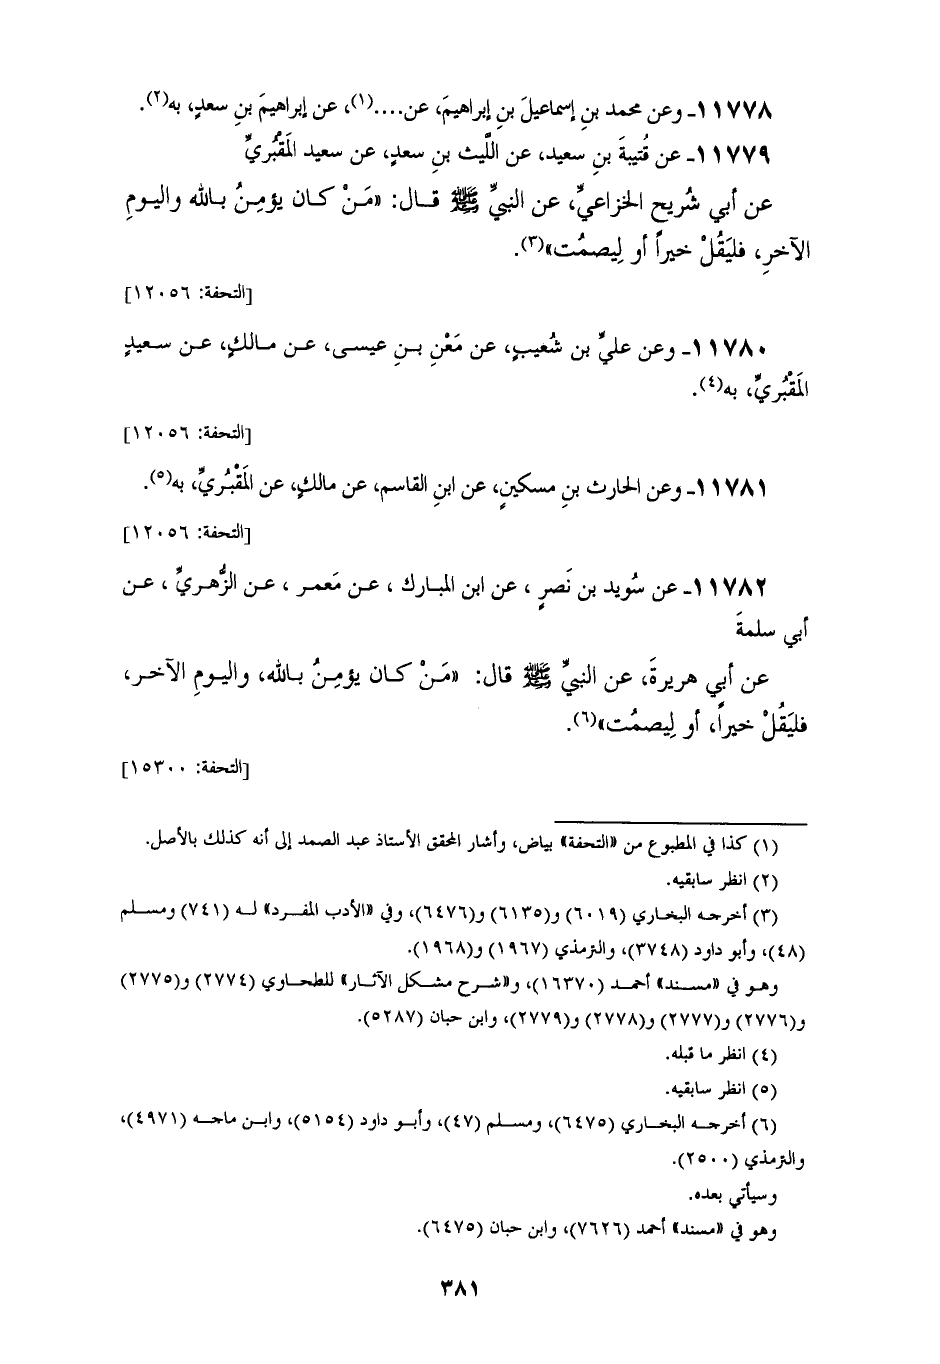 ١١٧٧٨ـ وعن محمد بنِ إسماعيلَ بنِ إبراهيمَ، عن....(١)، عن إبراهيمَ بنِ سعدٍ، به(٢).
١١٧٧٩ـ عن قُتيبةَ بنِ سعيد، عن اللَّيث بنِ سعدٍ، عن سعيد المَقْبُريِّ
عن أبي شُريح الخزاعيِّ، عن النبيِّ ﷺ قـال: «مَـنْ كـان يؤمِـنُ بـالله واليـومِ
الآخرِ، فليَقُلْ خيراً أو لِيصمُت»(٣).
[التحفة: ١٢٠٥٦]
١١٧٨٠ـ وعن عليِّ بن شُعيبٍ، عن مَعْنِ بـنِ عيسـى، عـن مـالكٍ، عـن سـعيدٍ
المَقْبُريِّ، به(٤).
[التحفة: ١٢٠٥٦]
١١٧٨١ـ وعن الحارث بنِ مسكينٍ، عن ابنِ القاسم، عن مالكٍ، عن المَقْبُريِّ، به(٥).
[التحفة: ١٢٠٥٦]
١١٧٨٢ـ عن سُويد بن نَصرٍ ، عن ابن المبـارك ، عـن مَعمـر ، عـن الزُّهـريِّ ، عـن
أبي سلمةَ
عن أبي هريرةَ، عن النبيِّ ﷺ قال: «مَـنْ كـان يؤمِـنُ بـالله، واليـومِ الآخـر،
فليَقُلْ خيراً، أو لِيصمُت»(٦).
[التحفة: ١٥٣٠٠]
(١) كذا في المطبوع من «التحفة» بياض، وأشار المحقق الأستاذ عبد الصمد إلى أنه كذلك بالأصل.
(٢) انظر سابقيه.
(٣) أخرجـه البخـاري (٦٠١٩) و(٦١٣٥) و(٦٤٧٦)، وفي «الأدب المفـرد» لـه (٧٤١) ومسـلم
(٤٨)، وأبو داود (٣٧٤٨)، والترمذي (١٩٦٧) و(١٩٦٨).
وهـو في «مسـند» أحمـد (١٦٣٧٠)، و«شـرح مشـكل الآثـار» للطحـاوي (٢٧٧٤) و(٢٧٧٥)
و(٢٧٧٦) و(٢٧٧٧) و(٢٧٧٨) و(٢٧٧٩)، وابن حبان (٥٢٨٧).
(٤) انظر ما قبله.
(٥) انظر سابقيه.
(٦) أخرجـه البخـاري (٦٤٧٥)، ومسـلم (٤٧)، وأبـو داود (٥١٥٤)، وابـن ماجـه (٤٩٧١)،
والترمذي (٢٥٠٠).
وسيأتي بعده.
وهو في «مسند» أحمد (٧٦٢٦)، وابن حبان (٦٤٧٥).
٣٨١